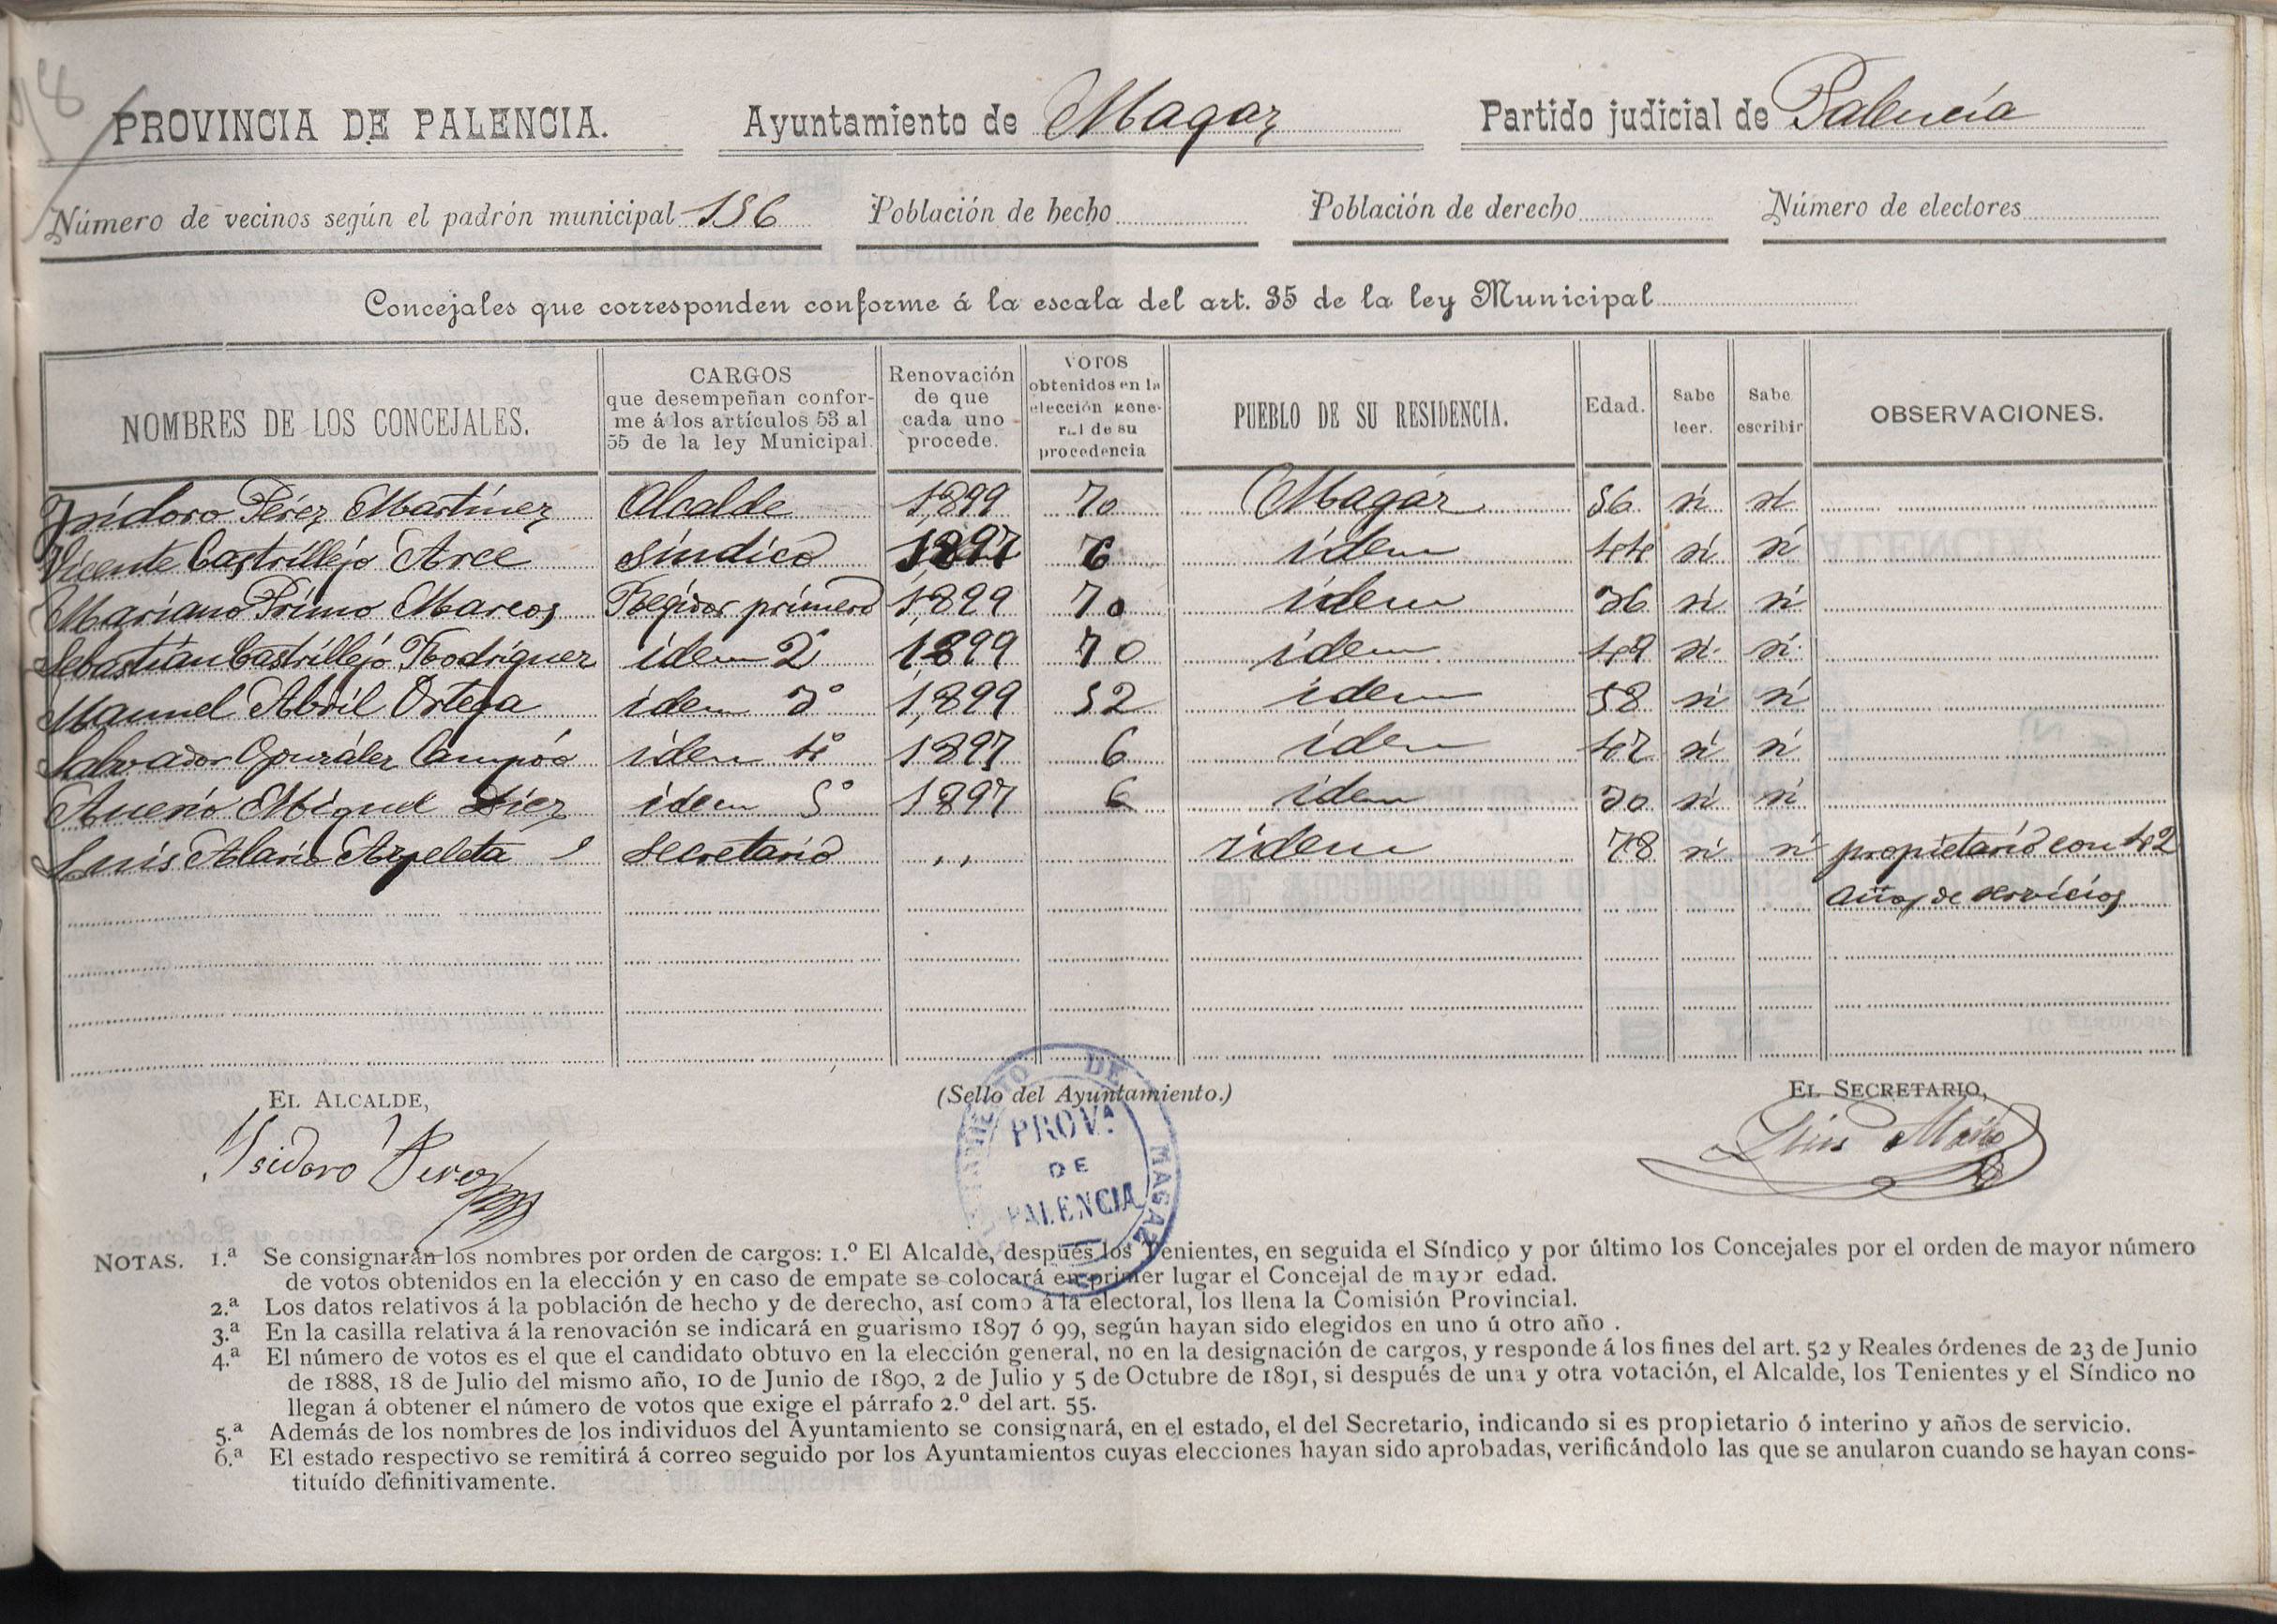 98
PROVINCIA DE PALENCIA. Ayuntamiento de Magaz Partido judicial de Palencia
Número de vecinos según el padrón municipal 156 Población de hecho Población de derecho Número de electores
Concejales que corresponden conforme á la escala del art. 35 de la ley Municipal
NOMBRES DE LOS CONCEJALES.
CARGOS
que desempeñan confor-
me á los artículos 53 al
55 de la ley Municipal.
Renovación
de que
cada uno
procede.
VOTOS
obtenidos en la
elección gene-
ral de su
procedencia
PUEBLO DE SU RESIDENCIA.
Edad.
Sabe
leer.
Sabe
escribir
OBSERVACIONES.
Isidoro Pérez Martínez Alcalde 1,899 70 Magáz 56 si si
Vicente Castrillejo Arce Síndico 1897 6 idem 44 si si
Mariano Primo Marcos Regidor primero 1,899 70 idem 36 si si
Sebastián Castrillejo Rodríguez idem 2º 1,899 70 idem 49 si si
Manuel Abril Ortega idem 3º 1,899 52 idem 58 si si
Salvador González Campóo idem 4º 1897 6 idem 47 si si
Miguel Diez idem 5º 1897 6 idem 30 si si
Luis Alario Azpeleta Secretario ,, idem 78 si si propietario con 42
años de servicios
EL ALCALDE, (Sello del Ayuntamiento.) EL SECRETARIO,
Isidoro Perez
Luis Alario
AYUNTAMIENTO DE MAGAZ
PROV.ª
DE
PALENCIA
NOTAS. 1.ª Se consignarán los nombres por orden de cargos: 1.º El Alcalde, después los Tenientes, en seguida el Síndico y por último los Concejales por el orden de mayor número
de votos obtenidos en la elección y en caso de empate se colocará en primer lugar el Concejal de mayor edad.
2.ª Los datos relativos á la población de hecho y de derecho, así como á la electoral, los llena la Comisión Provincial.
3.ª En la casilla relativa á la renovación se indicará en guarismo 1897 ó 99, según hayan sido elegidos en uno ú otro año .
4.ª El número de votos es el que el candidato obtuvo en la elección general, no en la designación de cargos, y responde á los fines del art. 52 y Reales órdenes de 23 de Junio
de 1888, 18 de Julio del mismo año, 10 de Junio de 1890, 2 de Julio y 5 de Octubre de 1891, si después de una y otra votación, el Alcalde, los Tenientes y el Síndico no
llegan á obtener el número de votos que exige el párrafo 2.º del art. 55.
5.ª Además de los nombres de los individuos del Ayuntamiento se consignará, en el estado, el del Secretario, indicando si es propietario ó interino y años de servicio.
6.ª El estado respectivo se remitirá á correo seguido por los Ayuntamientos cuyas elecciones hayan sido aprobadas, verificándolo las que se anularon cuando se hayan cons-
tituído definitivamente.